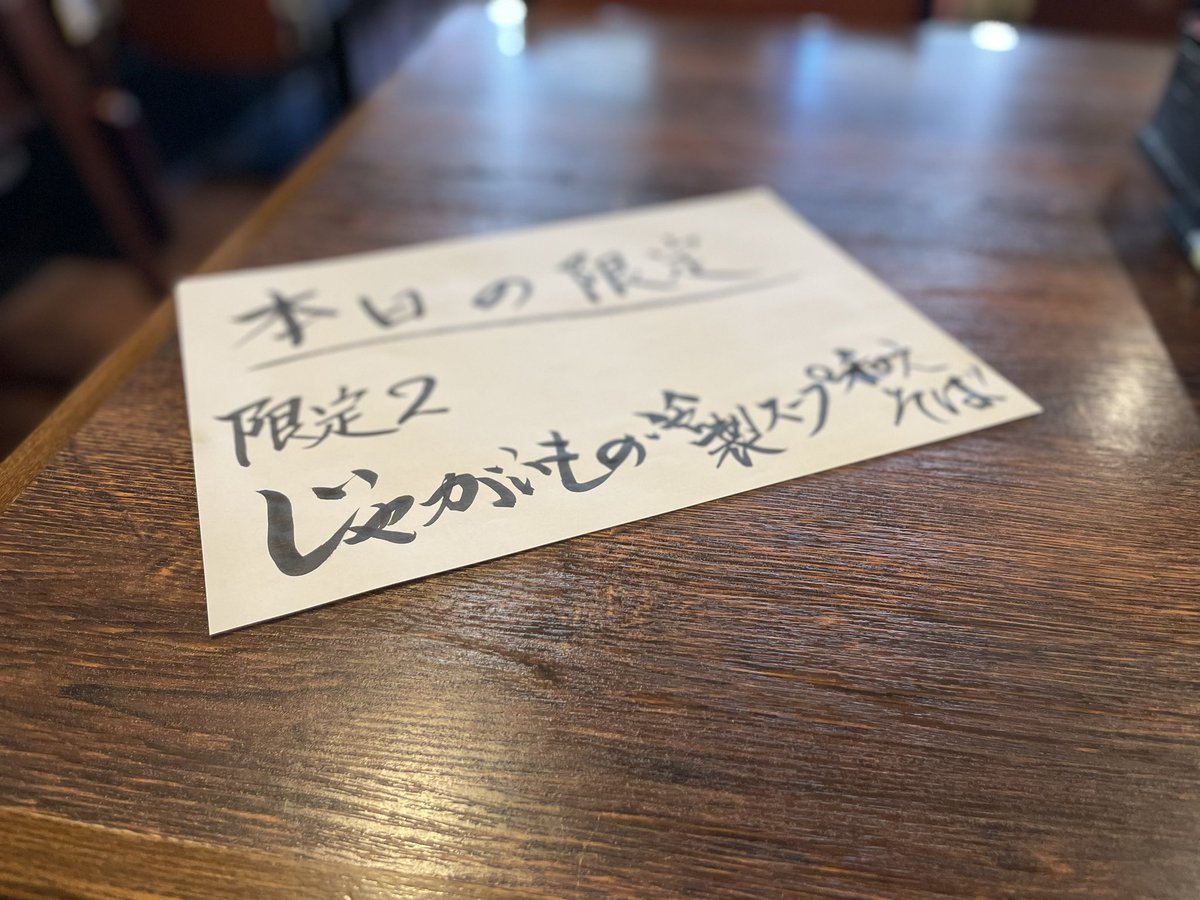 本日の限定
限定2
じゃがいもの冷製スープ和え
そば